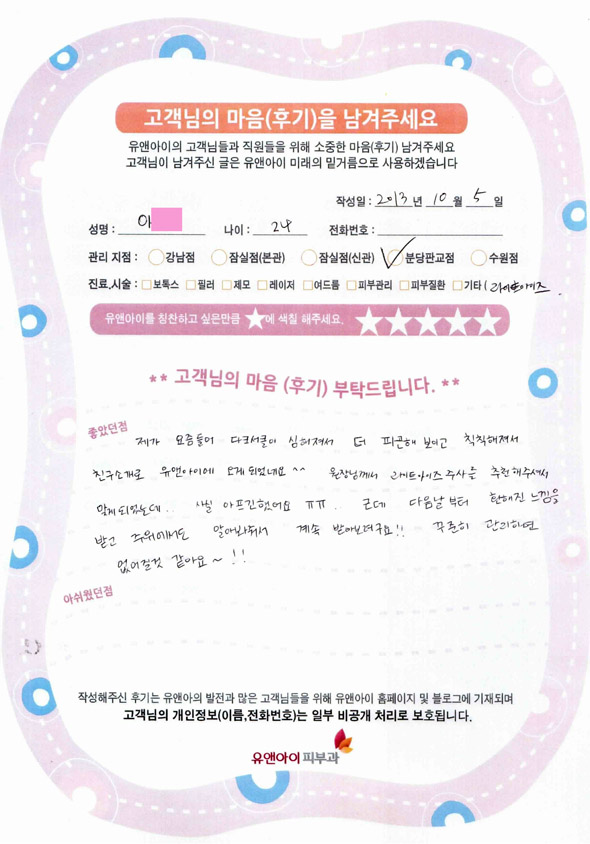 고객님의 마음(후기)을 남겨주세요
유앤아이의 고객님들과 직원들을 위해 소중한 마음(후기) 남겨주세요
고객님이 남겨주신 글은 유앤아이 미래의 밑거름으로 사용하겠습니다
작성일 : 2013 년 10 월 5 일
성명 : 이 나이 : 24 전화번호 :
관리 지점 : 강남점 잠실점(본관) 잠실점(신관) 분당판교점 수원점
진료,시술 : 보톡스 필러 제모 레이저 여드름 피부관리 피부질환 기타 ( 라이트아이즈 )
유앤아이를 칭찬하고 싶은만큼 ★에 색칠 해주세요. ★★★★★
** 고객님의 마음 (후기) 부탁드립니다. **
좋았던점
제가 요즘들어 다크서클이 심해져서 더 피곤해 보이고 칙칙해져서
친구소개로 유앤아이에 오게 되었네요 ^^ 원장님께서 라이트아이즈 주사를 추천해주셔서
맞게되었는데.. 사실 아프긴했어요 ㅠㅠ. 근데 다음날부터 환해진 느낌을
받고 주위에서도 알아봐줘서 계속 받아보려구요!! 꾸준히 관리하면
없어질것 같아요 ~ !!
아쉬웠던점
작성해주신 후기는 유앤아의 발전과 많은 고객님들을 위해 유앤아이 홈페이지 및 블로그에 기재되며
고객님의 개인정보(이름,전화번호)는 일부 비공개 처리로 보호됩니다.
유앤아이 피부과